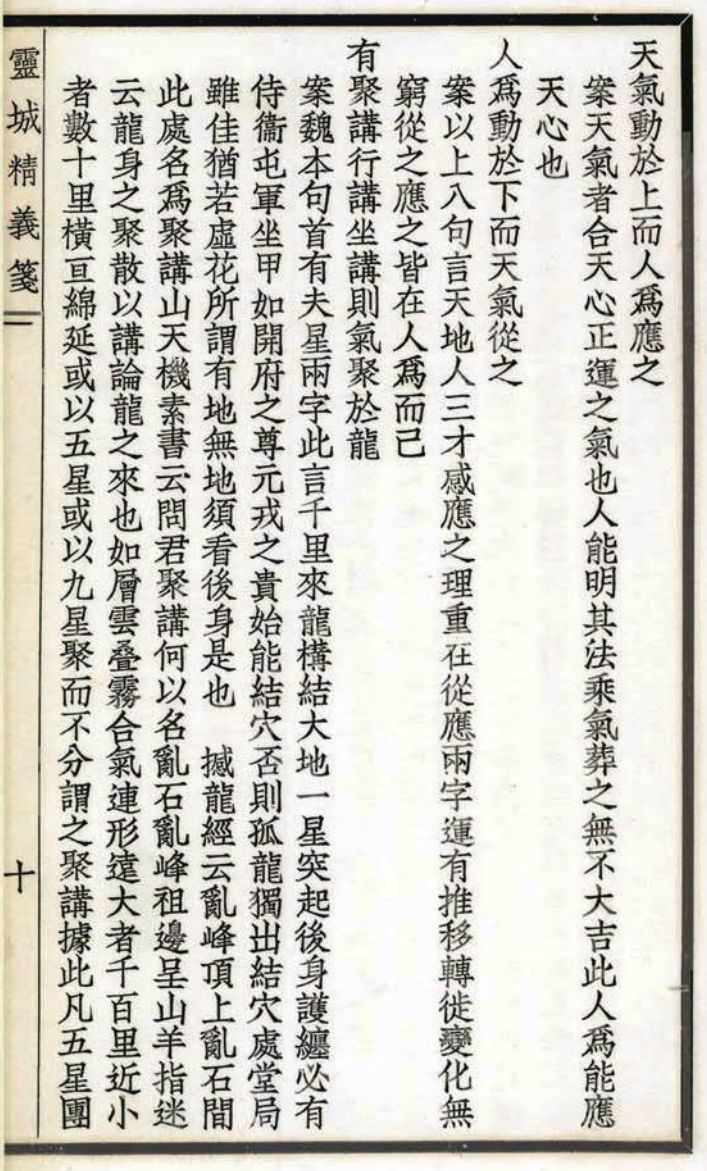 天氣動於上而人爲應之
案天氣者合天心正運之氣也人能明其法乘氣葬之無不大吉此人爲能應
天心也
人爲動於下而天氣從之
案以上八句言天地人三才感應之理重在從應兩字運有推移轉徙變化無
窮從之應之皆在人爲而已
有聚講行講坐講則氣聚於龍
案魏本句首有夫星兩字此言千里來龍構結大地一星突起後身護纏必有
侍衞屯軍坐甲如開府之尊元戎之貴始能結穴否則孤龍獨出結穴處堂局
雖佳猶若虛花所謂有地無地須看後身是也　撼龍經云亂峰頂上亂石間
此處名爲聚講山天機素書云問君聚講何以名亂石亂峰祖邊呈山羊指迷
云龍身之聚散以講論龍之來也如層雲叠霧合氣連形遠大者千百里近小
者數十里橫亘綿延或以五星或以九星聚而不分謂之聚講據此凡五星團
靈城精義箋
十